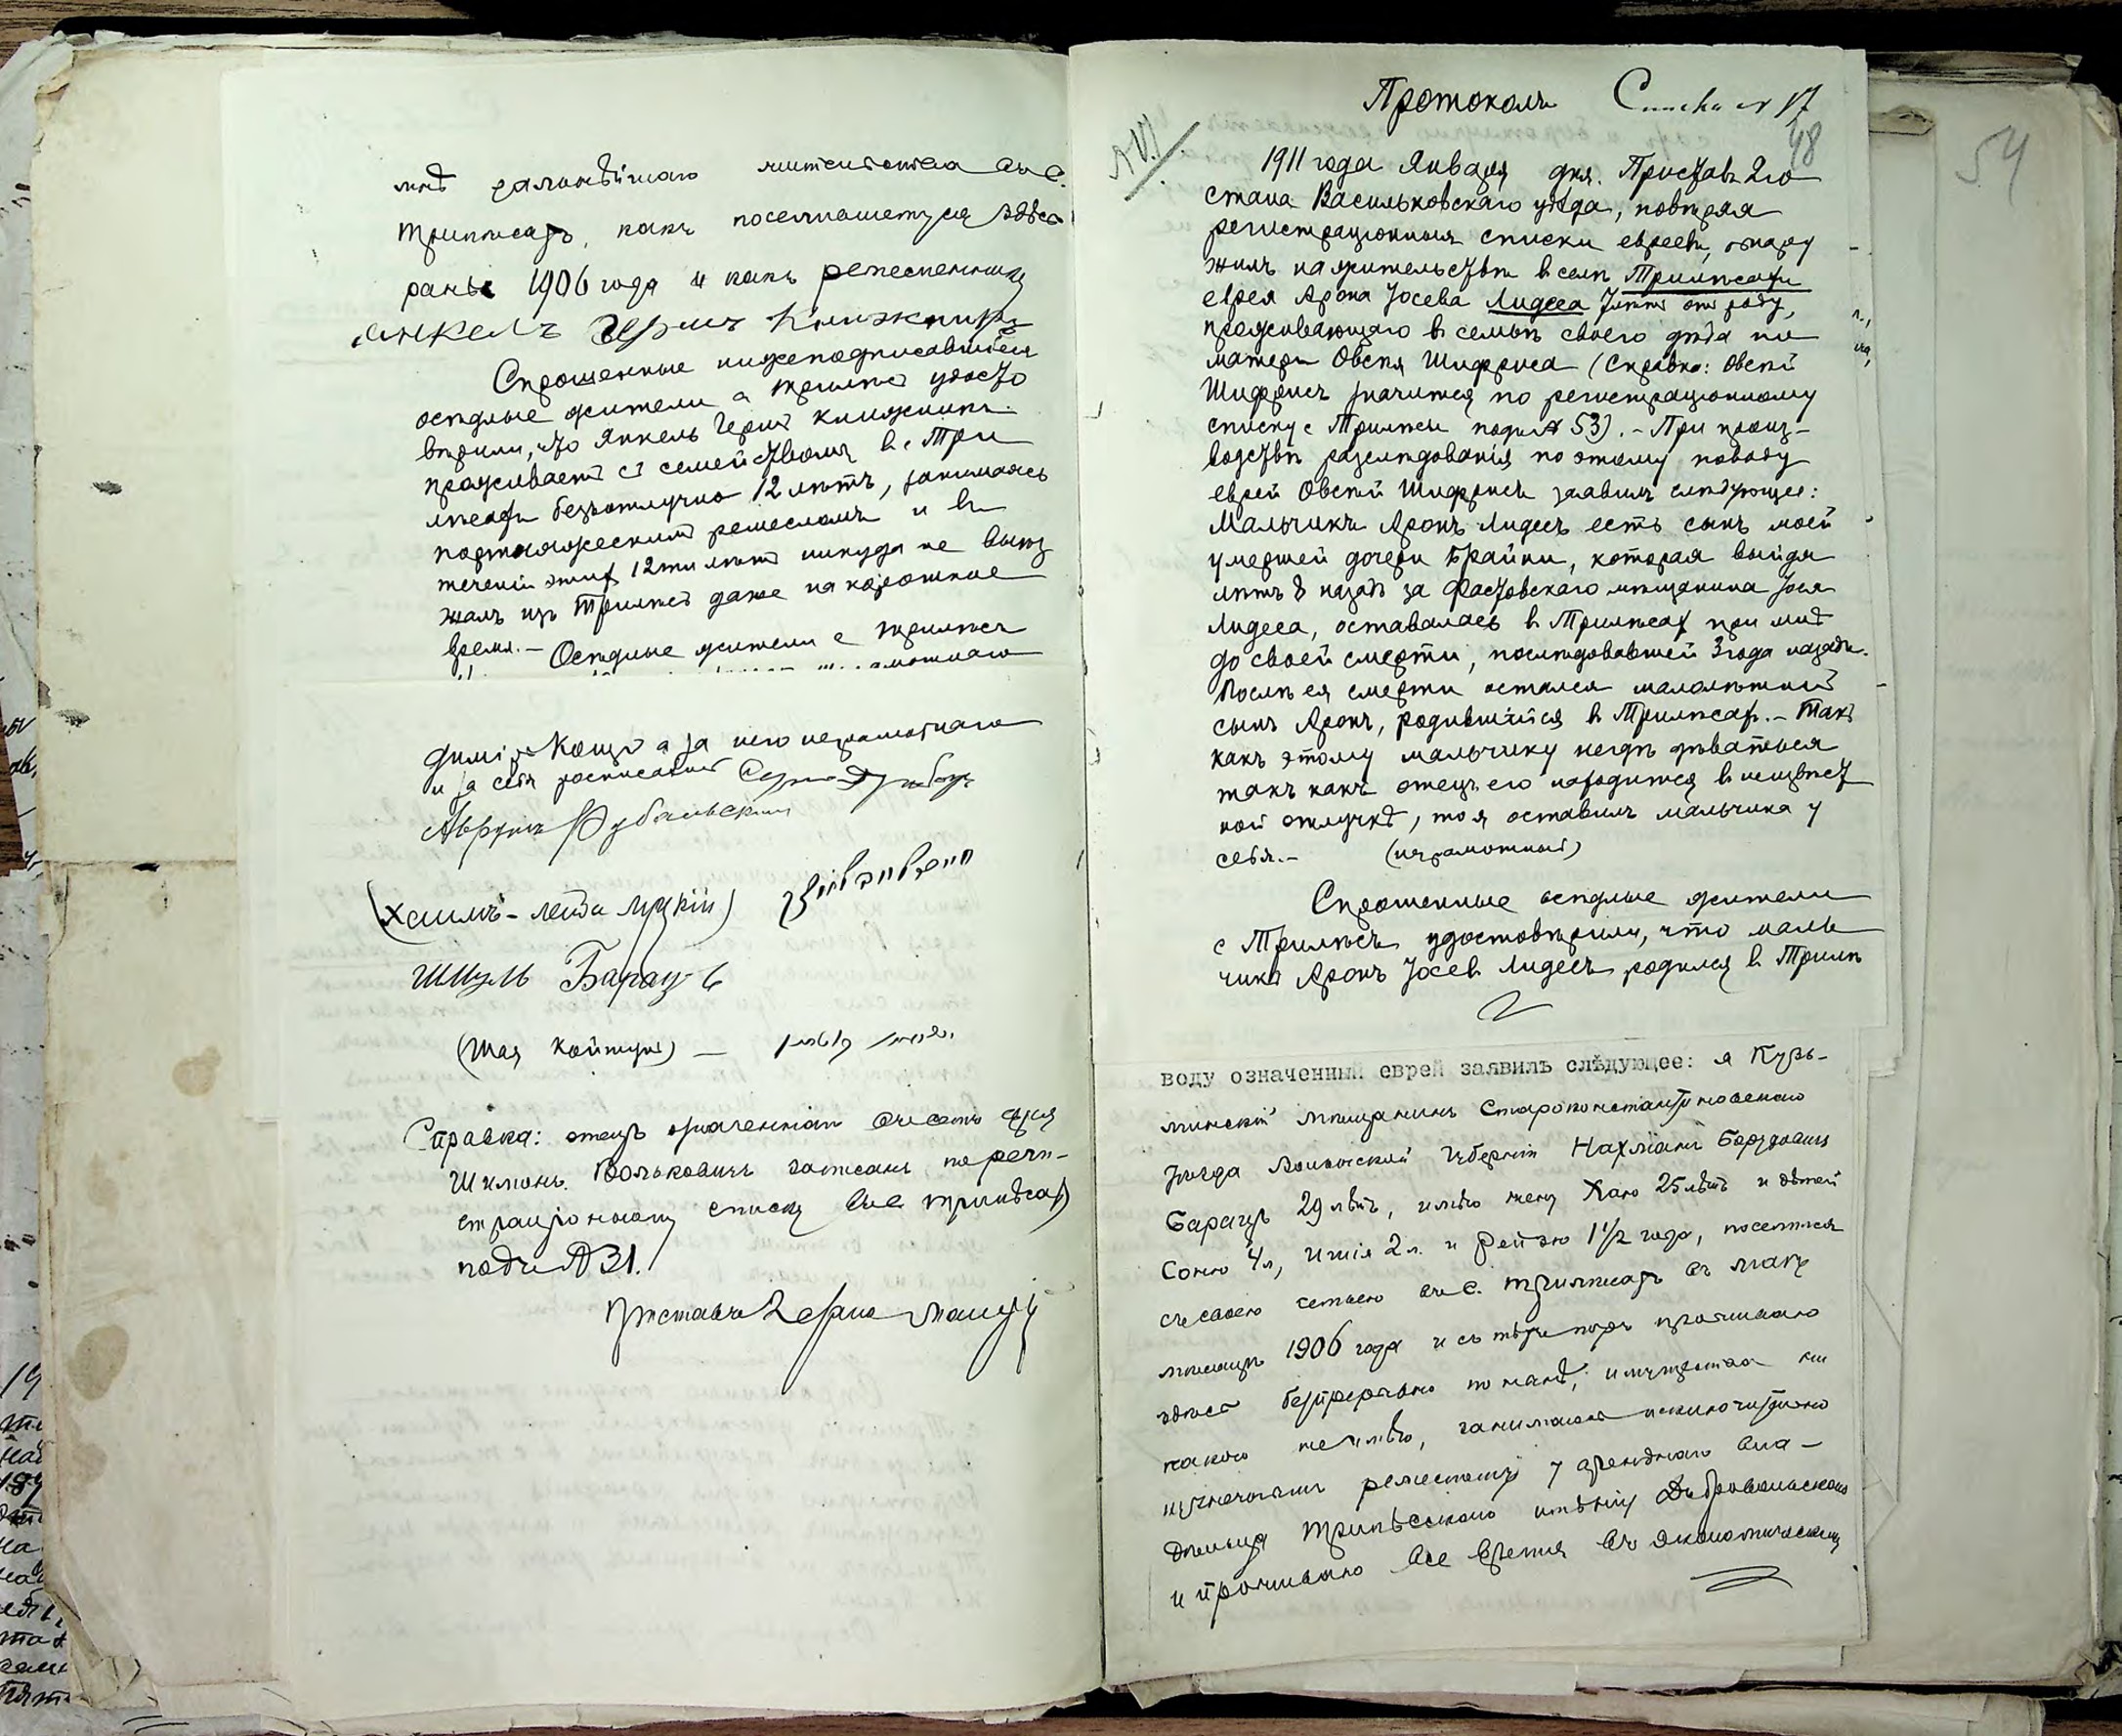 мнѣ дальнѣйшаго жительства въ с.
Трилѣсахъ, какъ поселившемуся здѣсь
раньше 1906 года и какъ ремесленнику
Янкель Герш Книжник
Спрошенные нижеподписавшіеся
осѣдлые жители с Трилѣсъ удосто
вѣрили, что Янкель Гершъ Книжникъ
проживаетъ съ семействомъ в с Три
лѣсахъ безъотлучно 12 лѣтъ, занимаясь
портняжескимъ ремесломъ и въ
теченіи этихъ 12ти лѣтъ никуда не выѣз
жалъ изъ Трилѣсъ даже на короткое
время. – Осѣдлые жители с Трилѣсъ
а за него неграмотнаго
и за себя росписался
Аврумъ
(Хаимъ-Лейба Луцкій)
Шмуль Барац
(Шая)
Справка: отецъ означеннаго еврея
Шимонъ Вольковичъ записанъ по реги-
страціонному списку въ с Трилѣсахъ
подъ № 31.
Приставъ 2 стана
Протоколъ Списка № 17
48
54
1911 года Января дня. Приставъ 2го
стана Васильковскаго уѣзда, повѣряя
регистраціонныя списки евреевъ, обнару
жилъ на жительствѣ в селѣ Трилѣсахъ
еврея Арона Іосева Лидеса 7 лѣтъ отъ роду,
проживающаго в семьѣ своего дѣда по
матери Овсѣя Шифриса (Справка: Овсѣй
Шифрисъ значится по регистраціонному
списку с Трилѣсы подъ № 53). – При произ-
водствѣ разслѣдованія по этому поводу
еврей Овсѣй Шифрисъ заявилъ слѣдующее:
Мальчикъ Аронъ Лидесъ есть сынъ моей
умершей дочери Брайни, которая выйдя
лѣтъ 8 назадъ за Фастовскаго мѣщанина Іося
Лидеса, оставалась в Трилѣсахъ при мнѣ
до своей смерти, послѣдовавшей 3 года назадъ.
Послѣ ея смерти остался малолѣтній
сынъ Аронъ, родившійся в Трилѣсахъ. – Такъ
какъ этому мальчику негдѣ дѣваться
такъ какъ отецъ его находится в неизвѣст
ной отлучкѣ, то я оставилъ мальчика у
себя. – (неграмотный)
Спрошенные осѣдлые жители
с Трилѣсъ удостовѣрили, что маль
чикъ Аронъ Іосев Лидесъ родился в Трилѣ
воду означенный еврей заявилъ слѣдующее: я Кузь-
минскій мѣщанинъ Староконстантиновскаго
уѣзда Волынской губерніи Нахманъ Боруховичъ
Барацъ 29 лѣтъ, имѣю жену Хаю 25 лѣтъ и дѣтей
Соню 4 л, Ицика 2 л. и Рейзю 1 1/2 года, поселился
съ своею семьею въ с. Трилѣсахъ въ маѣ
мѣсяцѣ 1906 года и съ тѣхъ поръ проживаю
здѣсь безпрерывно по нынѣ, имущества ни
какого не имѣю, занимаюсь исключительно
ремесломъ у аренднаго вла-
дѣльца Трилѣсскаго имѣнія Добровольскаго
и проживаю все время въ экономическомъ